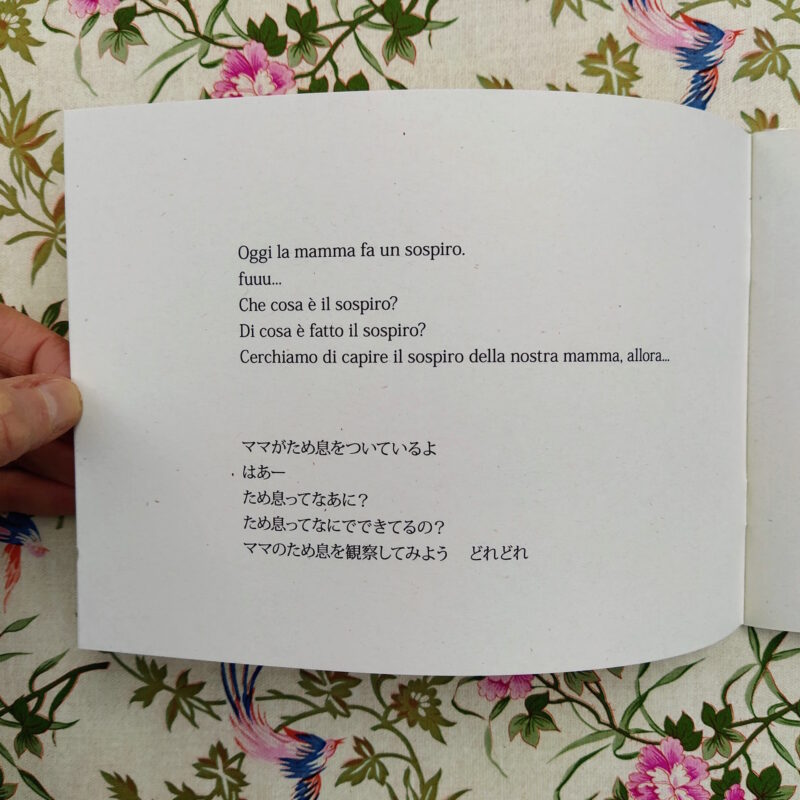 Oggi la mamma fa un sospiro.
fuuu...
Che cosa è il sospiro?
Di cosa è fatto il sospiro?
Cerchiamo di capire il sospiro della nostra mamma, allora...
ママがため息をついているよ
はあー
ため息ってなあに？
ため息ってなにでできてるの？
ママのため息を観察してみよう　どれどれ